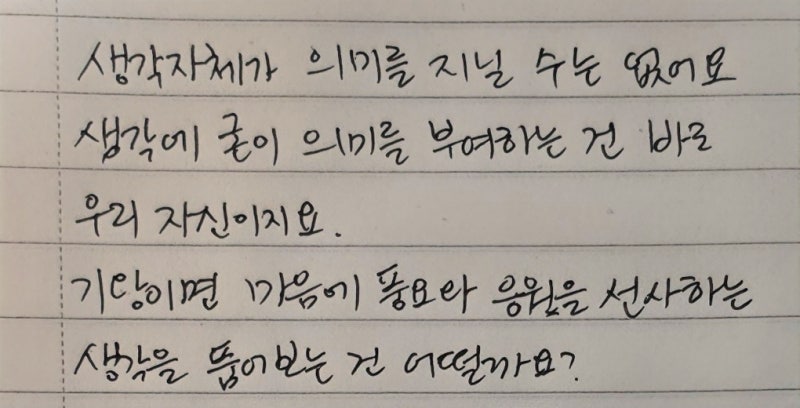 생각자체가 의미를 지닐 수는 없어요
생각에 굳이 의미를 부여하는 건 바로
우리 자신이지요.
기왕이면 마음에 풍요와 응원을 선사하는
생각을 품어보는 건 어떨까요?